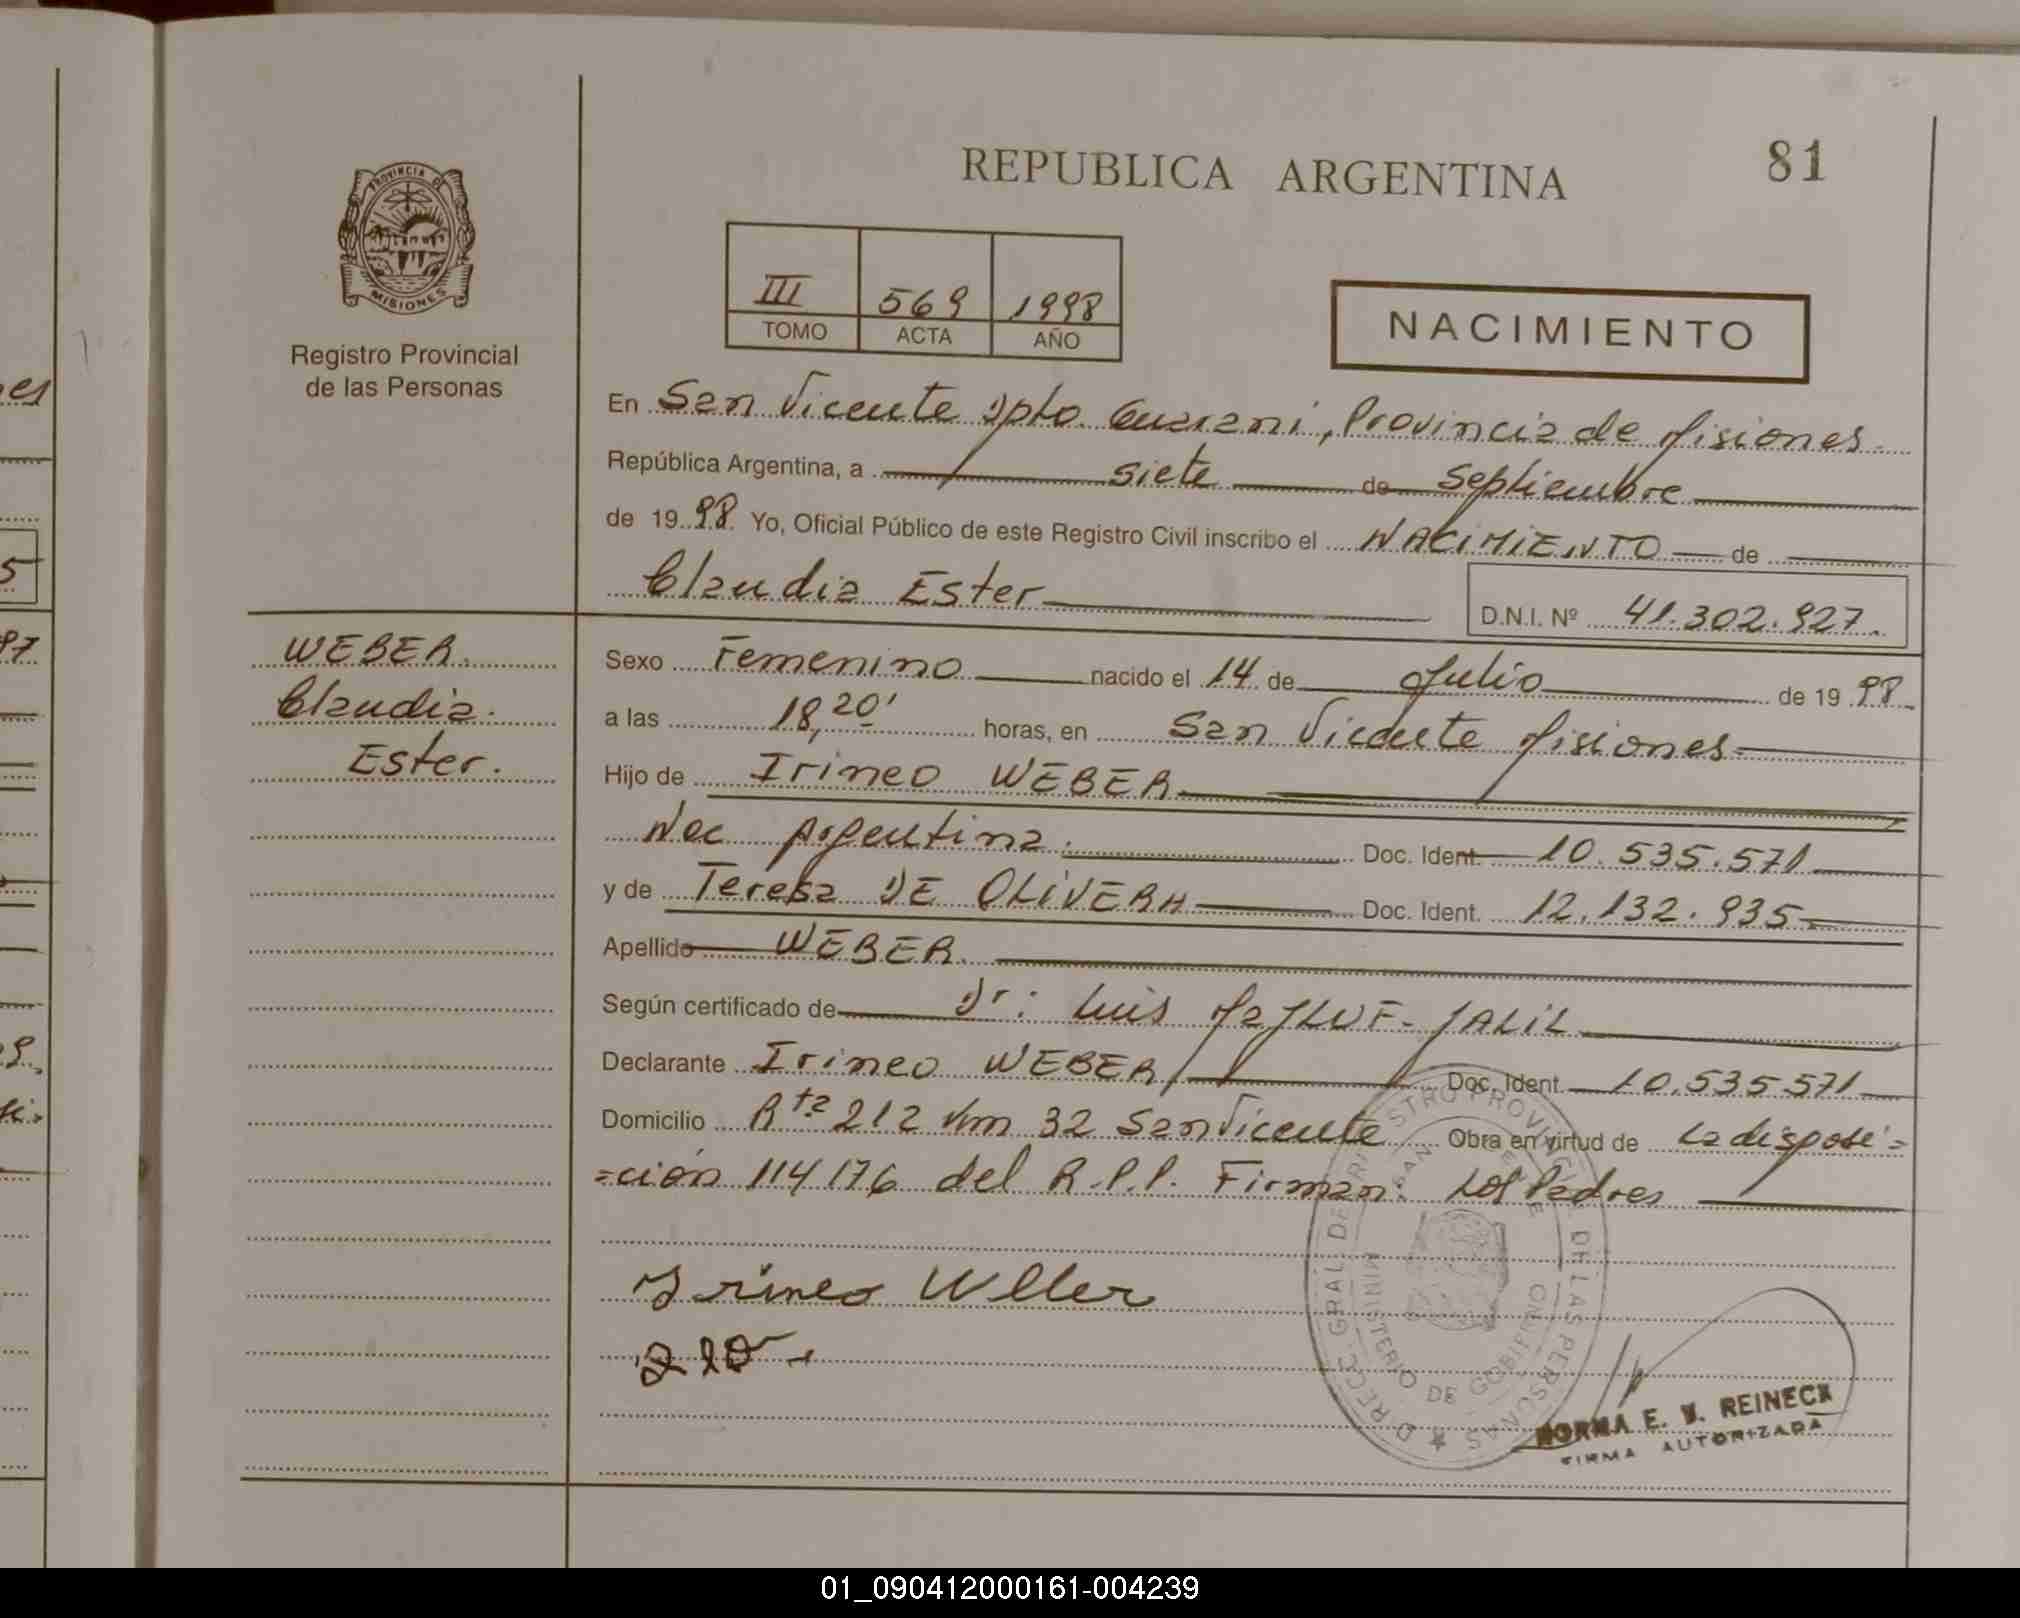 REPUBLICA ARGENTINA
81
PROVINCIA DE
MISIONES
Registro Provincial
de las Personas
III 569 1998
TOMO ACTA AÑO
NACIMIENTO
En San Vicente Dpto. Guarani, Provincia de Misiones.
República Argentina, a siete de Septiembre
de 1998 Yo, Oficial Público de este Registro Civil inscribo el NACIMIENTO de
Claudia Ester
D.N.I. Nº 41.302.927.
WEBER.
Claudia.
Ester.
Sexo Femenino nacido el 14 de Julio de 1998
a las 18,20' horas, en San Vicente Misiones
Hijo de Irineo WEBER
Nac Argentina. Doc. Ident. 10.535.571
y de Teresa DE OLIVERA Doc. Ident. 12.132.935
Apellido WEBER.
Según certificado de Dr: Luis JALIL
Declarante Irineo WEBER Doc. Ident. 10.535.571
Domicilio Rta 212 Km 32 San Vicente Obra en virtud de La disposi=
=ción 114176 del R.P.P. Firman: Los Padres
DIRECC. GRAL. DE REGISTRO PROVINCIAL DE LAS PERSONAS
MINISTERIO DE GOBIERNO
Irineo
NORMA E. W. REINECK
FIRMA AUTORIZADA
es
5
97
9.
01_090412000161-004239